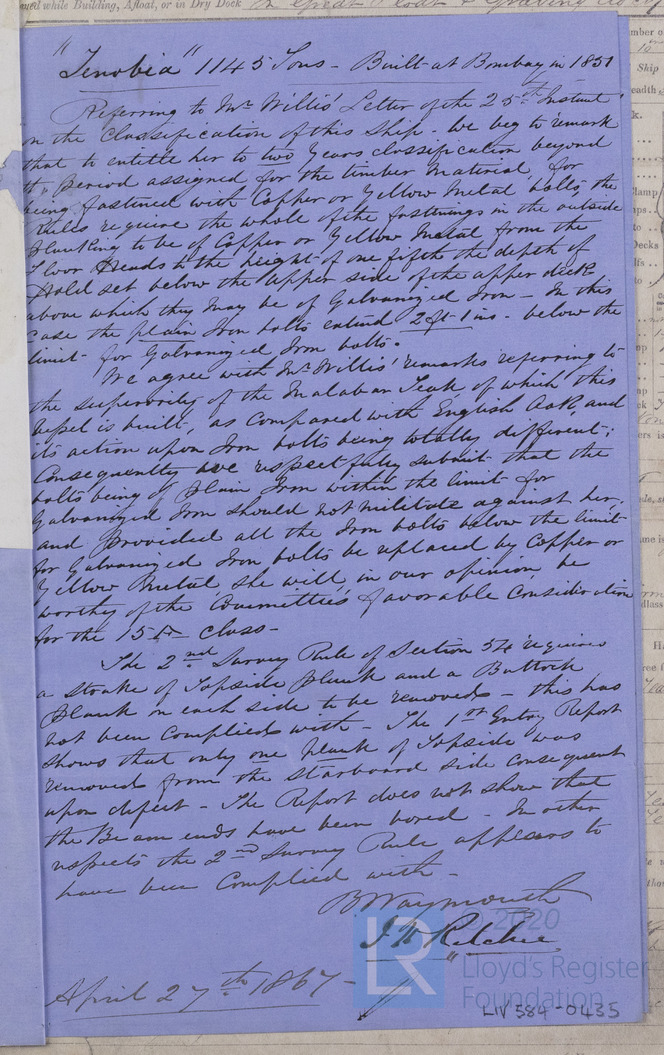 while Building, Afloat, or in Dry Dock
"Zenobia" 1145 Tons - Built at Bombay in 1851
Referring to Mr. Willis' Letter of the 25th Instant
on the Classification of this Ship. We beg to remark
that to entitle her to two Years classification beyond
the period assigned for the timber Material, for
being fastened with Copper or Yellow Metal bolts, the
Rules require the whole of the fastnings in the outside
planking to be of Copper or Yellow Metal from the
Floor Heads to the height of one fifth the depth of
Hold set below the upper side of the upper deck
above which they may be of Galvanized Iron - In this
case the plain Iron bolts extend 2 ft. 1 ins. below the
limit for Galvanized Iron bolts.
We agree with Mr. Willis' remarks referring to
the superiority of the Malabar Teak of which this
Vessel is built, as compared with English Oak, and
its action upon Iron bolts being totally different;
Consequently we respectfully submit that the
bolts being of Plain Iron within the limit for
Galvanized Iron should not militate against her,
and provided all the Iron bolts below the limit
for Galvanized Iron bolts be replaced by Copper or
Yellow Metal she will, in our opinion, be
worthy of the Committee's favorable Consideration
for the 15 A class -
The 2nd Survey Rule of Section 54 requires
a strake of Topside plank and a Buttock
plank on each side to be removed - this has
not been complied with - The 1st Entry Report
shows that only one plank of Topside was
removed from the starboard side consequent
upon defect - The Report does not show that
the Beam ends have been bored - In other
respects the 2nd Survey Rule appears to
have been complied with -
B Waymouth
J H Ritchie
April 27th 1867 -
© 2020
LR
Lloyd's Register
Foundation
LIV 584-0435